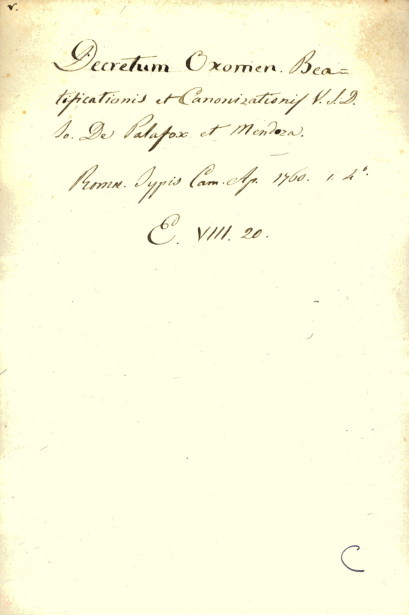 v.
Decretum Oxomen. Bea=
tificationis et Canonizationis V. S. D.
Io. De Palafox et Mendoza.
Romæ. Typis Cam. Ap. 1760. 1. 4º.
E. VIII. 20.
C